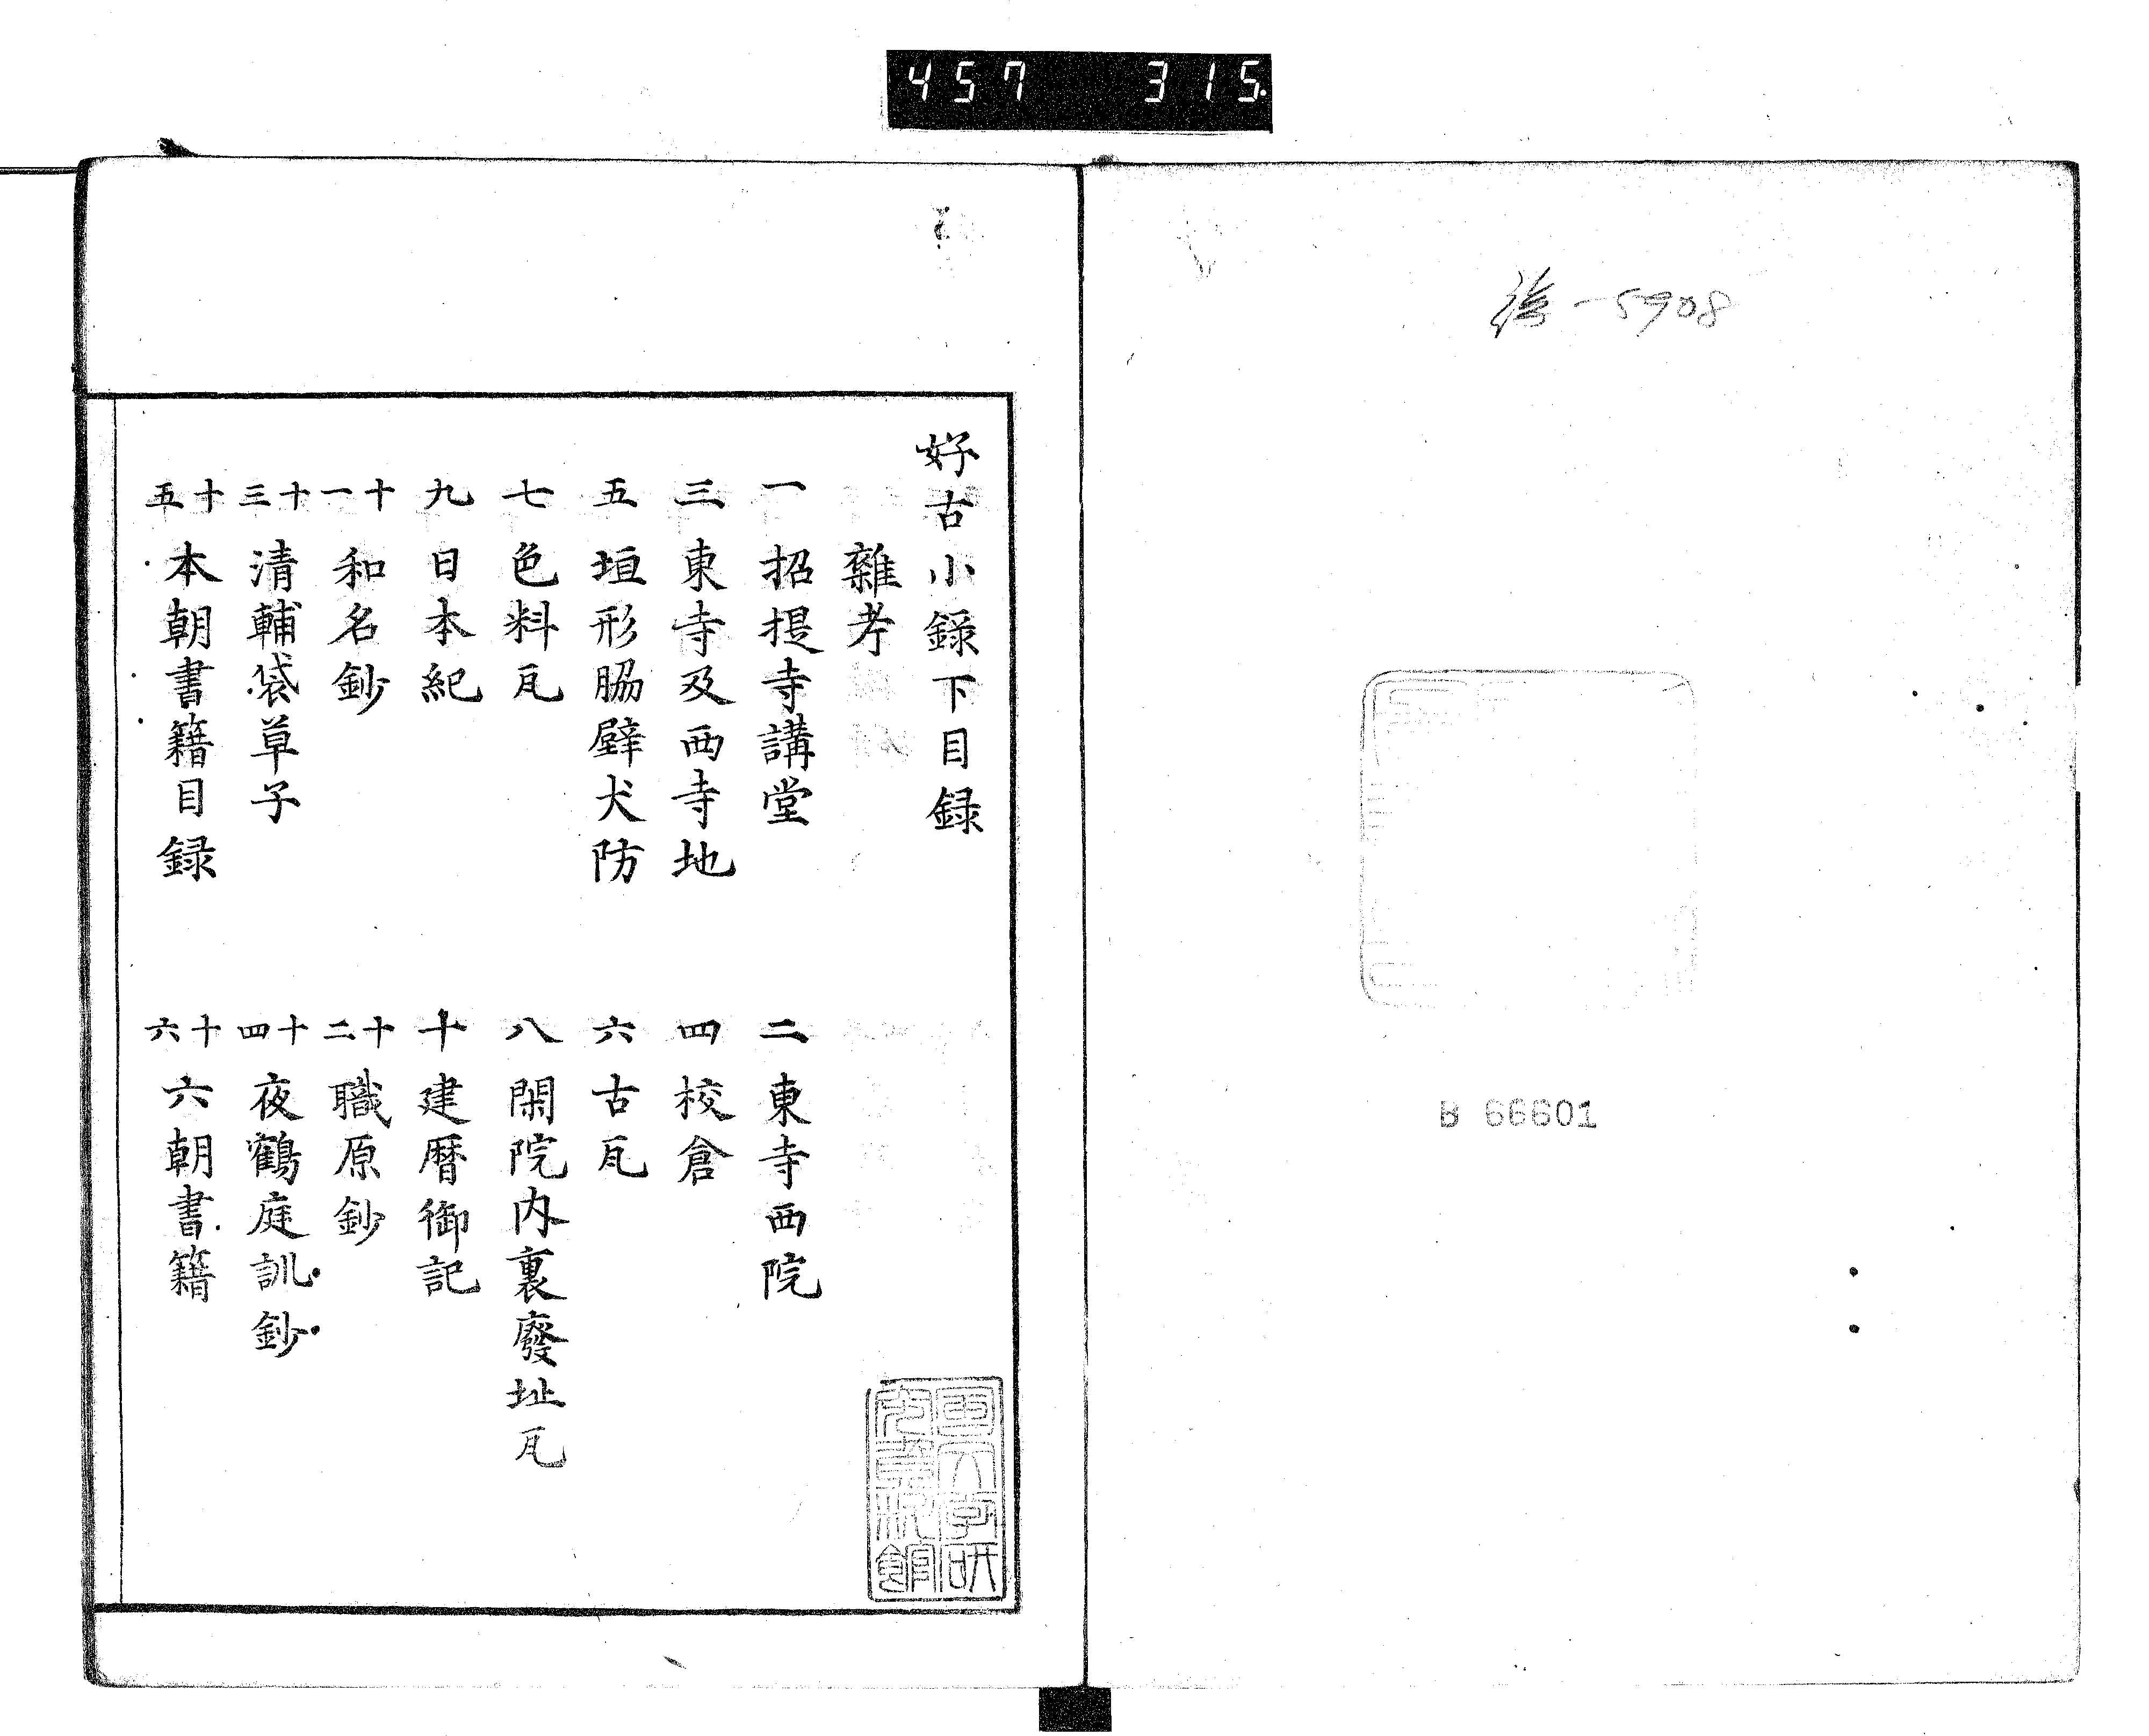 457 315.
-5908
B 66601
好古小録下目録
雜考
一 招提寺講堂
二 東寺西院
三 東寺及西寺地
四 校倉
五 垣形脇壁犬防
六 古瓦
七 色料瓦
八 閑院内裏廢址瓦
九 日本紀
十 建暦御記
十一 和名鈔
十二 職原鈔
十三 清輔袋草子
十四 夜鶴庭訓鈔
十五 本朝書籍目録
十六 六朝書籍